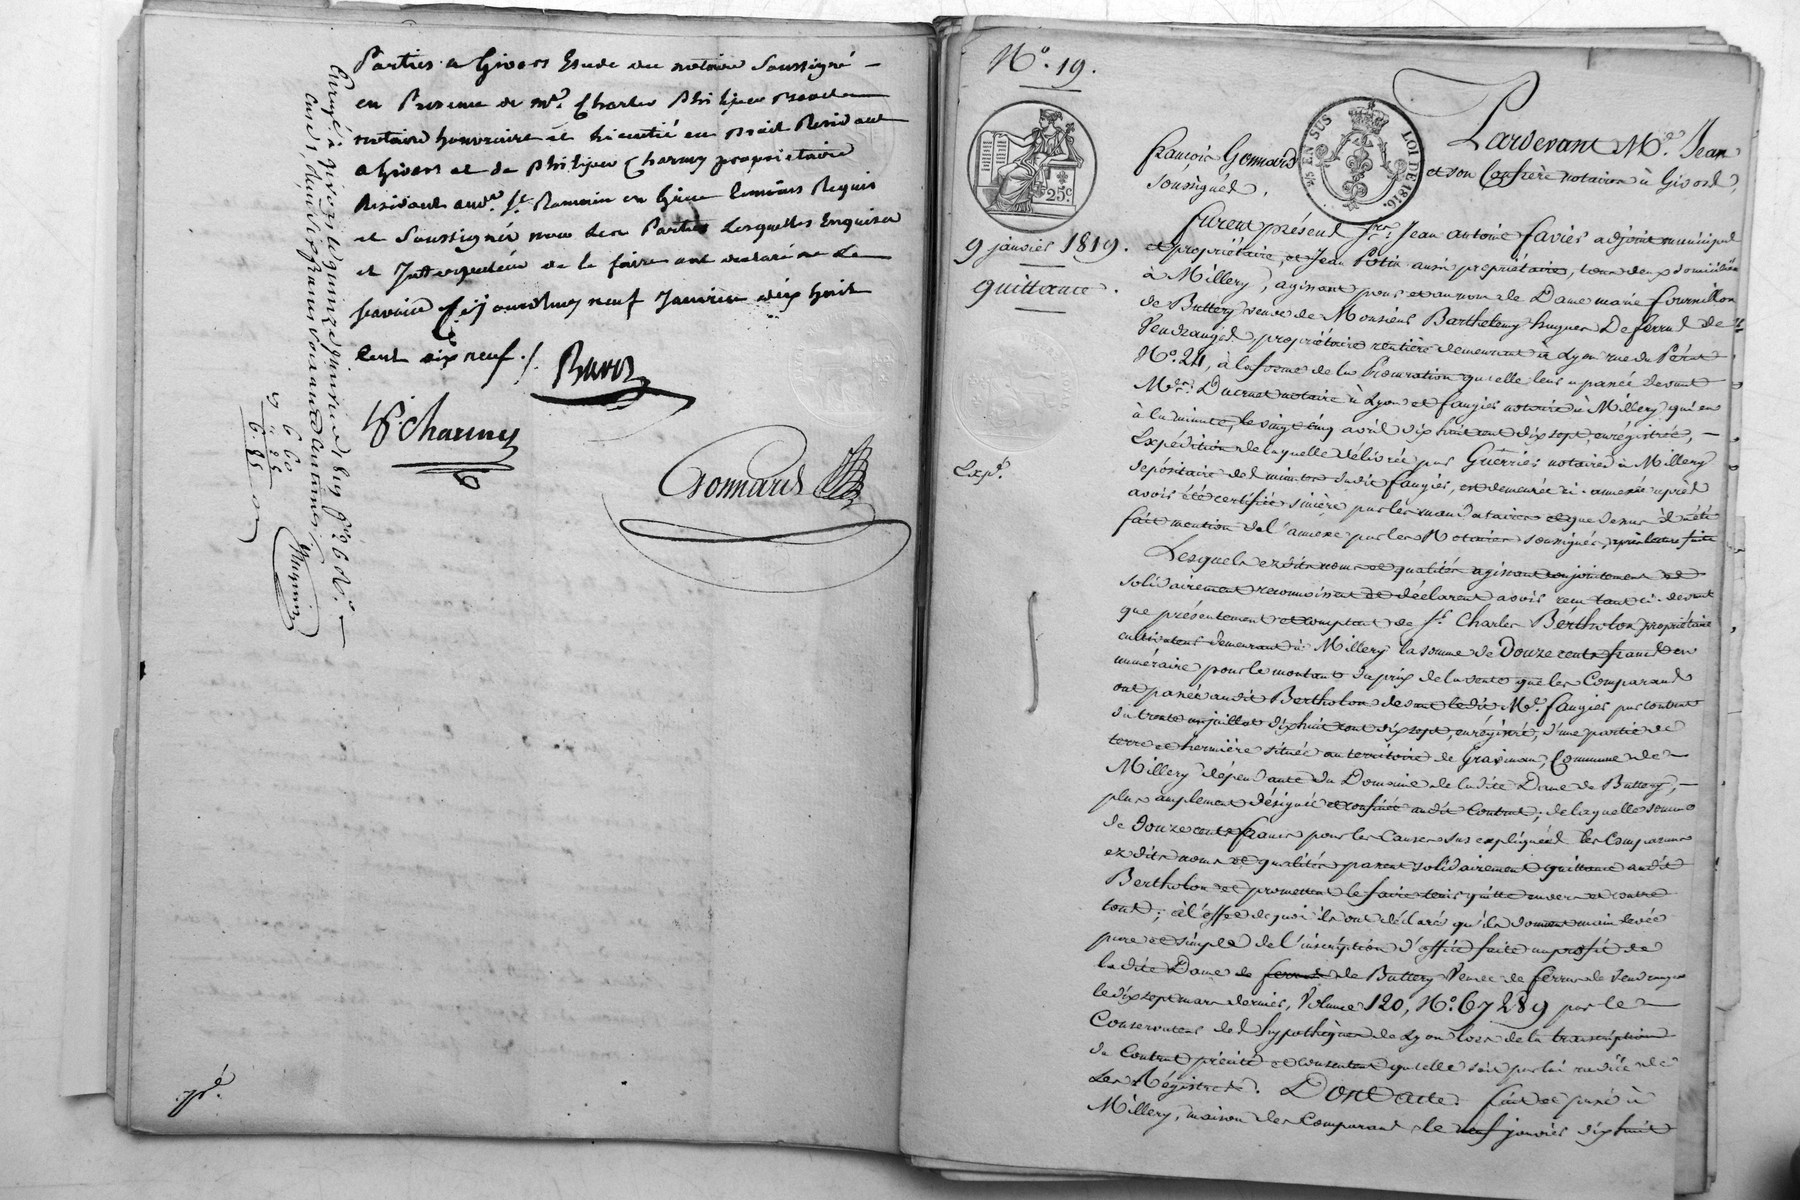 Parties a Givors Etude du notaire Soussigné
en Presence de mr. Charles Philippe
notaire honoraire et licentié en Droit Residant
a Givors et de Philippe Charmy proprietaire
Residant aud. St. Romain en Giers temoins Requis
et Soussignés non les Parties Lesquelles Enquises
et Interpellées de le faire ont declaré ne le
scavoir cejourdhuy neuf Janvier dix huit
cent dix neuf ./.
P. Charmy
Gonnard
Enregé. à Givors le quinze janvier 1819
6 60
66
6 . 85
N°. 19.
25c
EN SUS
LOI DE 1816.
9 janvier 1819.
quittance.
Expé.
Pardevant Me. Jean
françois Gonnard et son Confrère notaires à Givors,
soussignés,
furent présent Srs. Jean antoine favier adjoint municipal
et propriétaire, et Jean Potin aussi propriétaire, tous deux domiciliés
à Millery, agissant pour et au nom de Dame marie fournillon
de Buttery veuve de Monsieur Barthelemy hugues De ferrus de
Vendranges, propriétaire rentière demeurant à Lyon rue du Pérat
N°. 24, à la forme de la Procuration qu'elle leur a passée devant
Mes. Ducruet notaire à Lyon et faugier notaire à Millery, qui en
à la minute, le vingt cinq avril dix huit cent dix sept, enrégistrée,
Expédition de laquelle délivrée par Guerrier notaire à Millery
dépositaire des minutes dudit faugier, est demeurée ci-annexée après
avoir été certifiée sincère par les mandataires et que dessus il a été
fait mention de l'annexe par les Notaires soussignés, après lecture faite
Lesquels ezdits noms et qualités agissant conjointement et
solidairement reconnoissent et déclarent avoir reçu tant ci-devant
que présentement et comptant de Sr. Charles Bértholon propriétaire
cultivateur demeurant à Millery la somme de Douze cents francs en
numéraire pour le montant du prix de la vente que les Comparans
ont passée audit Bertholon devant ledit Me. faugier par contrat
du trente un juillet dix huit cent dix sept, enrégistré, d'une partie de
terre et hermière située au territoire de Gravinan, Commune de
Millery dépendante du Domaine de ladite Dame de Buttery,
plus amplement désignée et confinée audit Contrat; de laquelle somme
de Douze cents francs pour les Causes sus expliquées les Comparans
ezdits noms et qualités passent solidairement quittance audit
Bertholon et promettent le faire tenir quitte envers et contre
tous; à l'effet de quoi ils ont déclaré qu'ils donnent main levée
pure et simple de l'inscription d'office faite au profit de
ladite Dame de ferrus de Buttery Veuve de ferrus de Vendranges
le dix sept mars dernier, Volume 120, N°. 67289 par le
Conservateur des hypothèques de Lyon lors de la transcription
du Contrat précité et consentent qu'elle soit par lui radiée de
ses Régistres. Dont acte. fait et passé à
Millery, maison des Comparans le neuf janvier dix huit